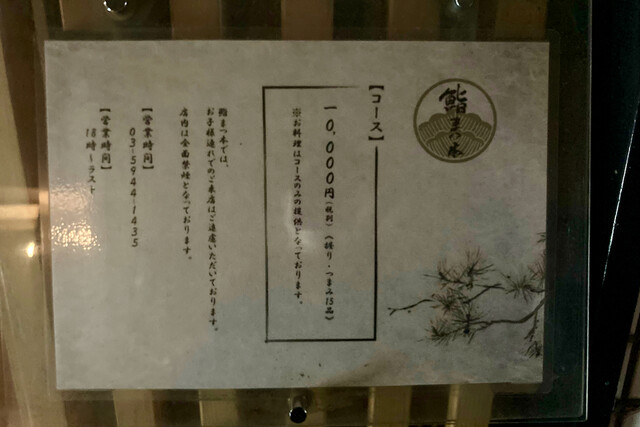 鮨まつ本
【コース】
一〇,〇〇〇円(税別)(握り・つまみ15品)
※お料理はコースのみの提供となっております。
鮨まつ本では、
お子様連れでのご来店はご遠慮いただいております。
店内は全面禁煙となっております。
【営業時間】
03-5944-1435
【営業時間】
18時~ラスト